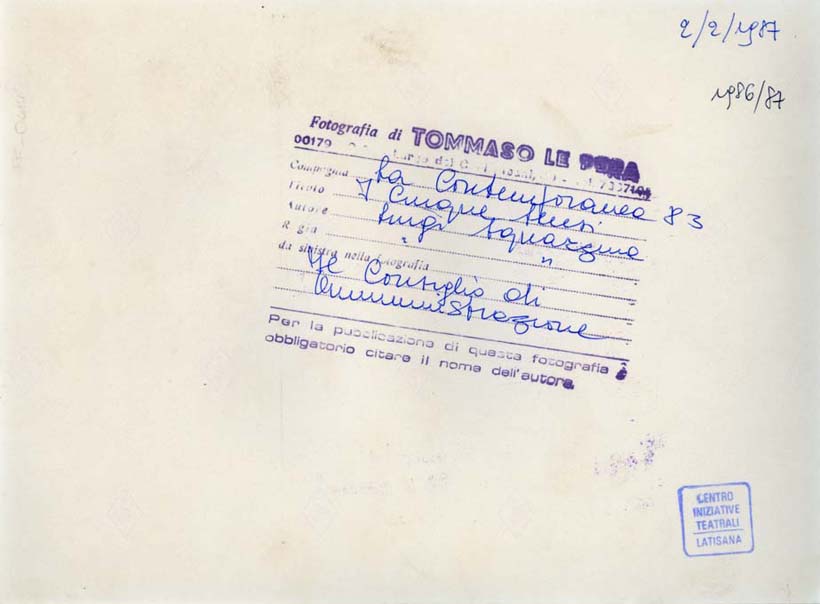 2/2/1987
1986/87
Fotografia di TOMMASO LE PERA
00179
Compagnia La Contemporanea 83
Titolo I Cinque Sensi
Autore Luigi Squarzina
Regia " "
da sinistra nella fotografia
Il Consiglio di
Amministrazione
Per la pubblicazione di questa fotografia è
obbligatorio citare il nome dell'autore.
CENTRO
INIZIATIVE
TEATRALI
LATISANA